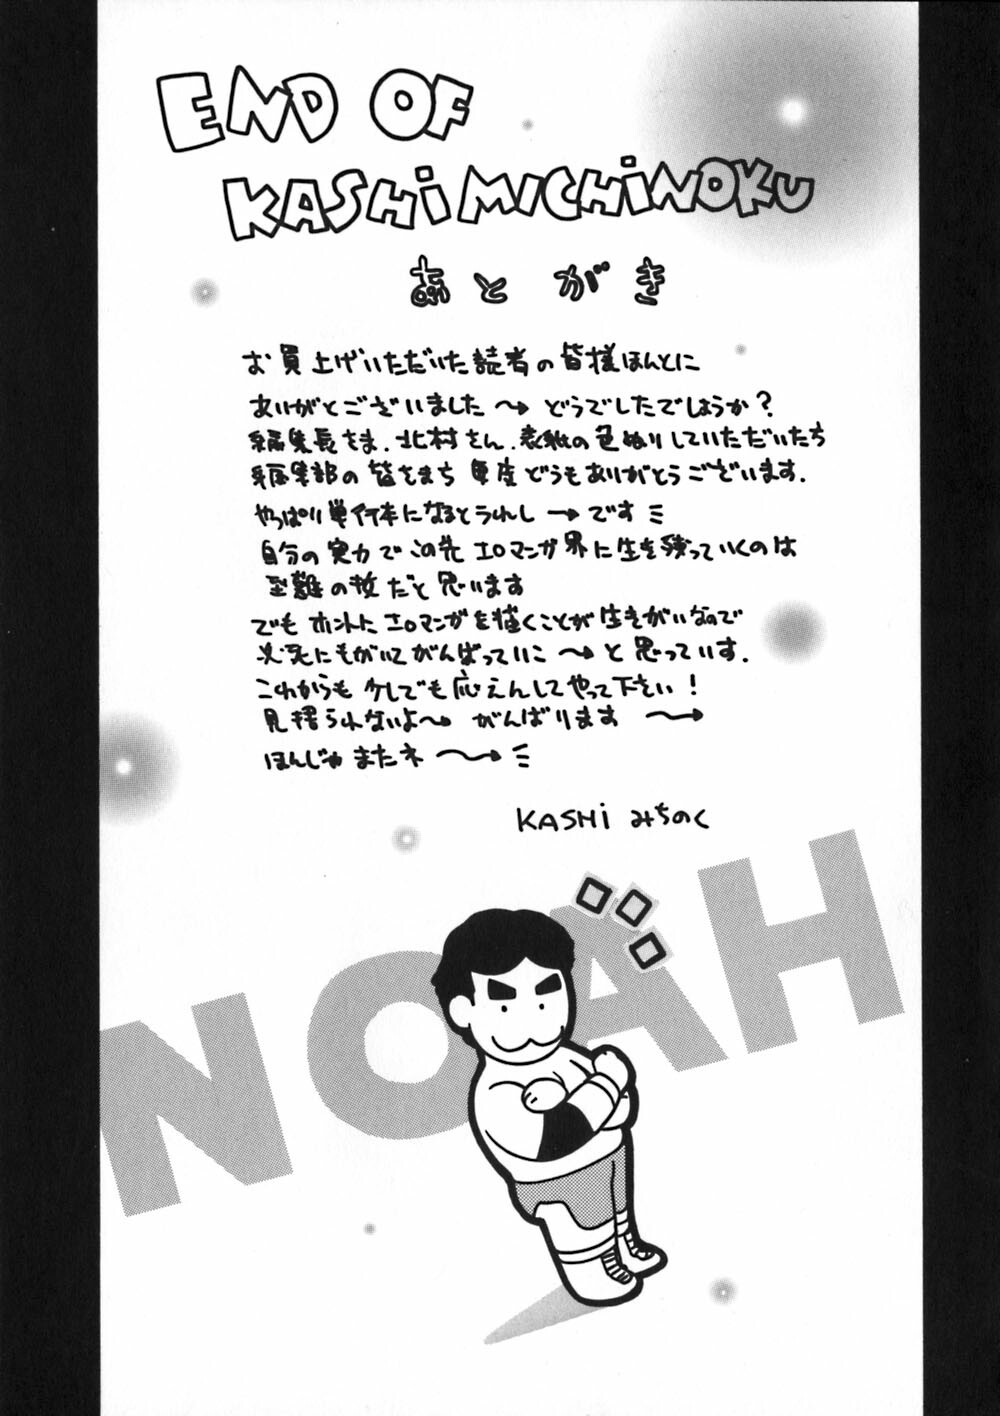 END OF
KASHI MICHINOKU
あとがき
お買上げいただいた読者の皆様ほんとに
ありがとございました〜どうでしたでしょうか?
編集長さま、北村さん、表紙の色ぬりしていただいたち
編集部の皆さまち 毎度どうもありがとうございます.
やっぱり単行本になるとうれし〜です
自分の実力でこの先エロマンガ界に生き残っていくのは
至難の技だと思います
でもホントにエロマンガを描くことが生きがいなので
必死にもがいてがんばっていこ〜と思っていす.
これからも少しでも応えんしてやって下さい!
見捨られないよ〜がんばります〜
ほんじゃまたネ〜
KASHI みちのく
NOAH